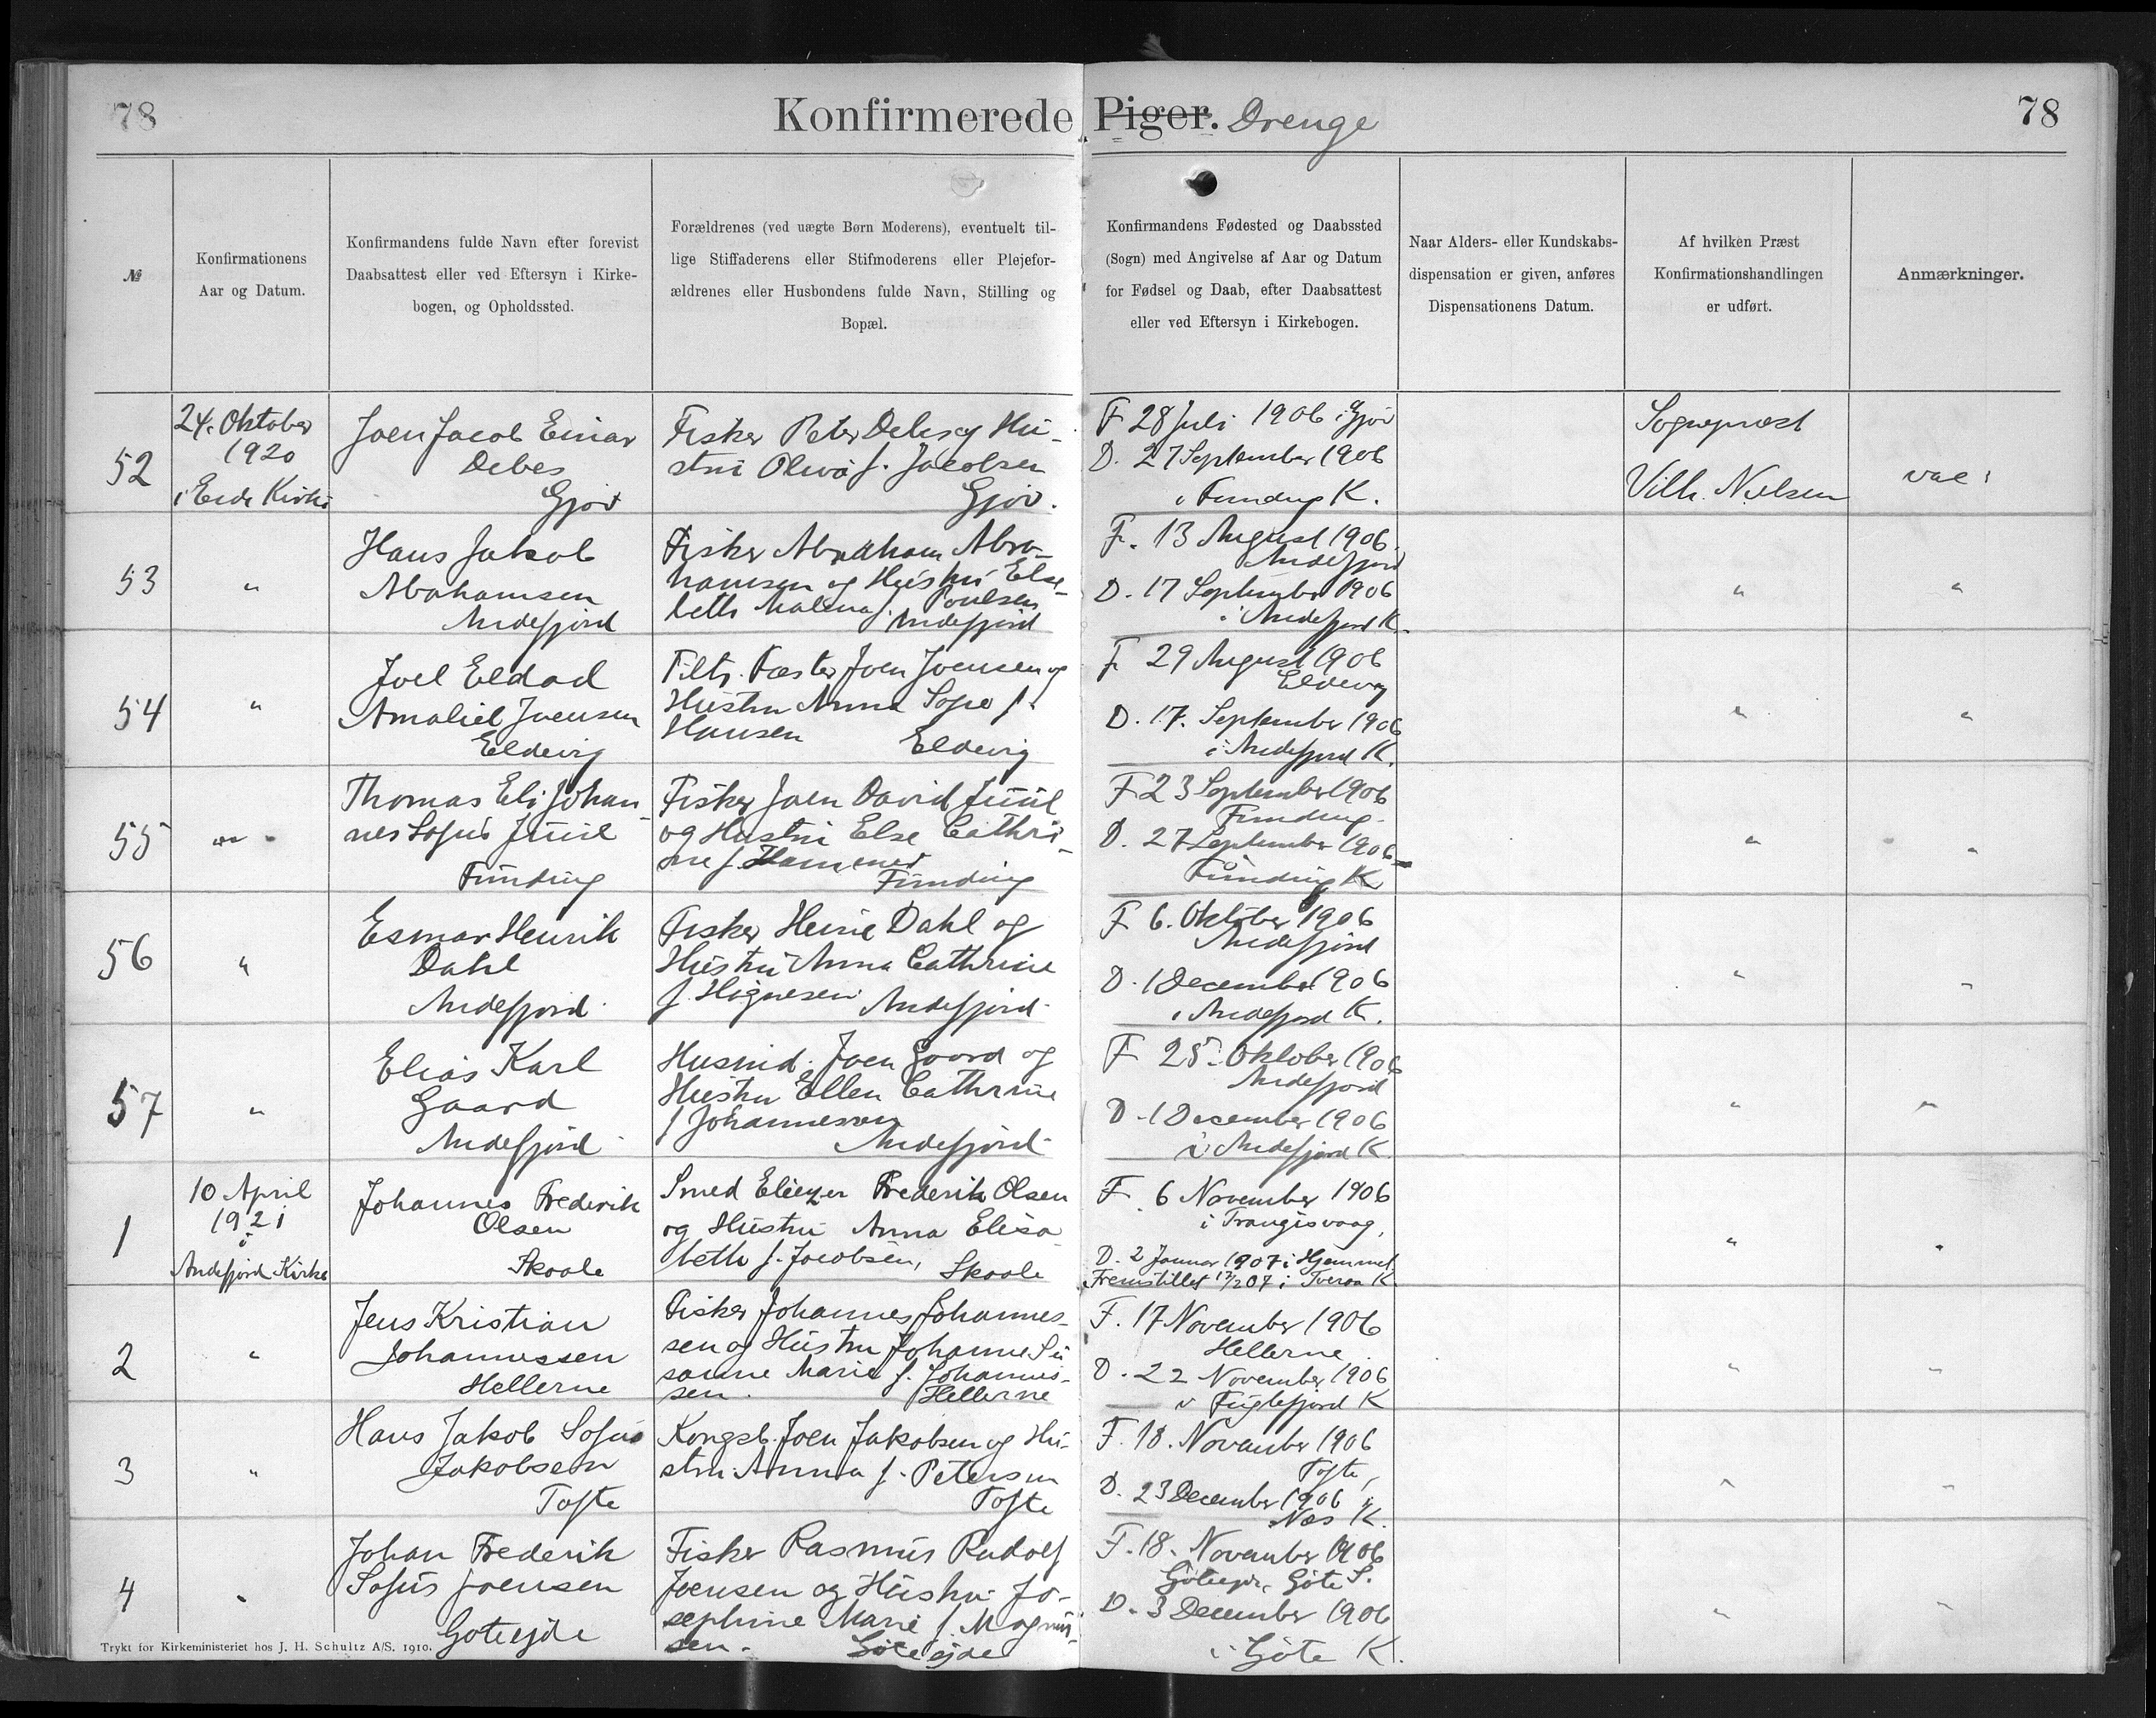 78
Konfirmerede Piger. Drenge
78
№
Konfirmationens
Aar og Datum.
Konfirmandens fulde Navn efter forevist
Daabsattest eller ved Eftersyn i Kirke-
bogen, og Opholdssted.
Forældrenes (ved uægte Børn Moderens), eventuelt til-
lige Stiffaderens eller Stifmoderens eller Plejefor-
ældrenes eller Husbondens fulde Navn, Stilling og
Bopæl.
Konfirmandens Fødested og Daabssted
(Sogn) med Angivelse af Aar og Datum
for Fødsel og Daab, efter Daabsattest
eller ved Eftersyn i Kirkebogen.
Naar Alders- eller Kundskabs-
dispensation er given, anføres
Dispensationens Datum.
Af hvilken Præst
Konfirmationshandlingen
er udført.
Anmærkninger.
52
24. Oktober
1920
i Eide Kirke
Joen Jacob Einar
Debes
Gjov
Fisker Peter Debes og Hu-
stru Oliva f. Jacobsen
Gjov.
F 28 Juli 1906 i Gjov
D. 27 September 1906
i Funding K.
Sognepræst
Vilh. Nielsen
vac:
53
"
Hans Jakob
Abrahamsen
Andefjord
Fisker Abraham Abra-
hamsen og Hustru Else-
beth Malena f. Poulsen
Andefjord
F. 13 August 1906.
Andefjord
D. 17 September 1906
i Andefjord K.
"
"
54
"
Joel Eldad
Amaliel Joensen
Eldevig
Filts. Fæster Joen Joensen og
Hustru Anna Sofie f.
Hansen Eldevig
F 29 August 1906
Eldevig
D. 17. September 1906
i Andefjord K.
"
"
55
"
Thomas Eli Johan-
nes Sofus Juul
Funding
Fisker Joen David Juul
og Hustru Else Cathri-
ne f. Hammer
Funding
F 23 September 1906
Funding.
D. 27 September 1906
Funding K
"
"
56
"
Esmar Henrik
Dahl
Andefjord
Fisker Heine Dahl og
Hustru Anna Cathrine
f. Høgnesen Andefjord
F 6. Oktober 1906
Andefjord
D. 1 December 1906
i Andefjord K.
"
"
57
"
Elias Karl
Gaard
Andefjord
Husmd. Joen Gaard og
Hustru Ellen Cathrine
f Johannesen
Andefjord
F 25. Oktober 1906
Andefjord
D. 1 December 1906
i Andefjord K.
"
"
1
10 April
1921
i
Andefjord Kirke
Johannes Frederik
Olsen
Skaale
Smed Eliezer Frederik Olsen
og Hustru Anna Elisa
beth f. Jacobsen, Skaale
F. 6 November 1906
i Trangisvaag,
D. 2 Januar 1907 i Hjemmet
Fremstillet 17/2 07 i Tveraa K.
"
"
2
"
Jens Kristian
Johannessen
Hellerne
Fisker Johannes Johannes-
sen og Hustru Johanne Su
sanne Marie f. Johannes-
sen. Hellerne
F. 17 November 1906
Hellerne
D. 22 November 1906
i Fuglefjord K
"
"
3
"
Hans Jakob Sofus
Jakobsen
Tofte
Kongsb. Joen Jakobsen og Hu-
stru Anna f. Petersen
Tofte
F. 18. November 1906
Tofte,
D. 23 December 1906 i
Næs K.
"
"
4
"
Johan Frederik
Sofus Joensen
Gøteejde
Fisker Rasmus Rudolf
Joensen og Hustru Jo-
sephine Marie f. Magnus-
sen. Gøteejde
F. 18. November 1906
Gøteejde, Gøte S.
D. 3 December 1906
i Gøte K.
"
"
Trykt for Kirkeministeriet hos J. H. Schultz A/S. 1910.